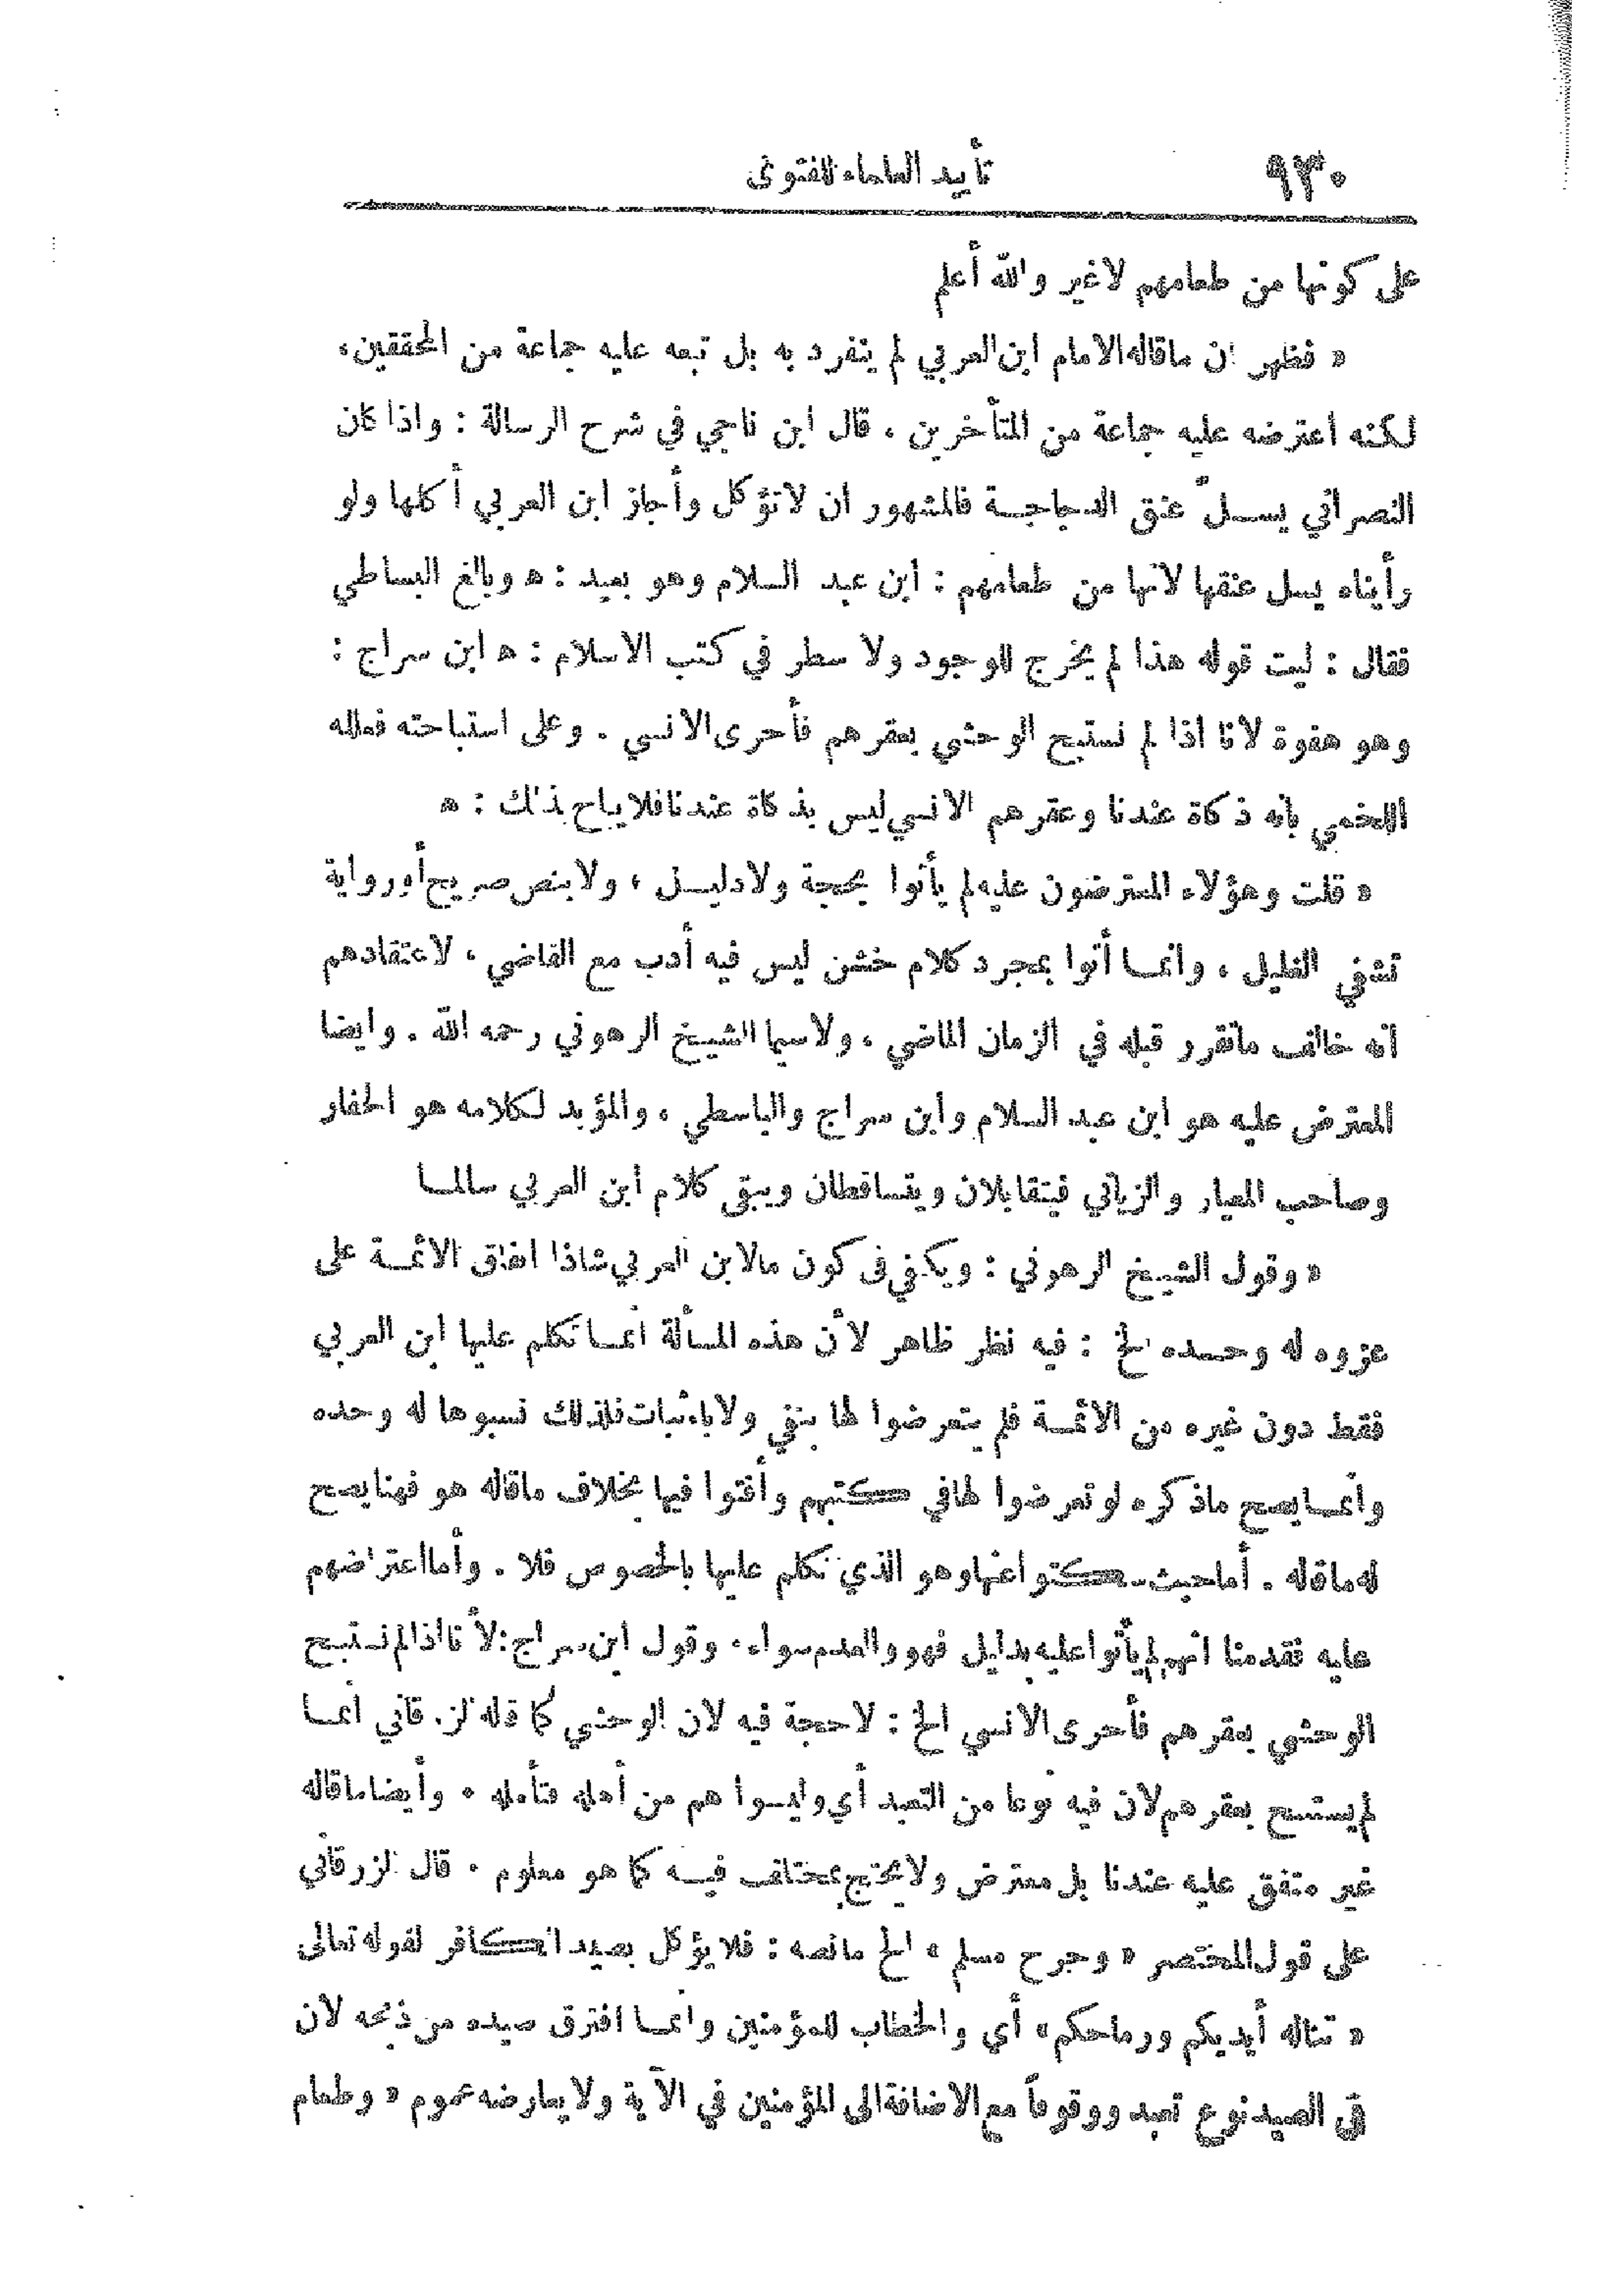 ٩٣٠ تأييد العلماء للفتوى
على كونها من طعامهم لاغير والله أعلم
« فظهر ان ماقاله الامام ابن العربي لم ينفرد به بل تبعه عليه جماعة من المحققين،
لكنه اعترضه عليه جماعة من المتأخرين ، قال ابن ناجي في شرح الرسالة : واذا كان
النصراني يسلّ عنق الدجاجة فالمشهور ان لاتؤكل وأجاز ابن العربي أكلها ولو
رأيناه يسل عنقها لأنها من طعامهم : ابن عبد السلام وهو بعيد : ه وبالغ البساطي
فقال : ليت قوله هذا لم يخرج للوجود ولا سطر في كتب الاسلام : ه ابن سراج :
وهو هفوة لانا اذا لم نستبح الوحشي بعقرهم فأحرى الانسي . وعلى استباحته فعلله
اللخمي بانه ذكاة عندنا وعقرهم الانسي ليس بذكاة عندنا فلا يباح بذلك : ه
« قلت وهؤلاء المعترضون عليه لم يأتوا بحجة ولا دليل ، ولا بنص صريح أو رواية
تشفي الغليل ، وانما أتوا بمجرد كلام خشن ليس فيه أدب مع القاضي ، لاعتقادهم
انه خالف ماتقرر قبله في الزمان الماضي ، ولاسيما الشيخ الرهوني رحمه الله . وايضا
المعترض عليه هو ابن عبد السلام وابن سراج والباسطي ، والمؤيد لكلامه هو الحفار
وصاحب المعيار والزياتي فيتقابلان ويتساقطان ويبقى كلام أبن العربي سالما
« وقول الشيخ الرهوني : ويكفي فى كون مالابن العربي شاذا اتفاق الائمة على
عزوه له وحده الخ : فيه نظر ظاهر لأن هذه المسألة انما تكلم عليها ابن العربي
فقط دون غيره من الائمة فلم يتعرضوا لها بنفي ولا باثبات فلذلك نسبوها له وحده
وانما يصح ماذكره لو تعرضوا لها في كتبهم وأفتوا فيها بخلاف ماقاله هو فهنا يصح
له ماقاله . أما حيث سكتوا عنها وهو الذي تكلم عليها بالخصوص فلا . وأما اعتراضهم
عليه فقدمنا انهم لم يأتوا عليه بدليل فهو والعدم سواء . وقول ابن سراج : لأنا اذا لم نستبح
الوحشي بعقرهم فأحرى الانسي الخ : لاحجة فيه لان الوحشي كما قاله الزرقاني انما
لم يستبح بعقرهم لان فيه نوعا من التعبد أي وليسوا هم من أهله فتأمله . وأيضا ماقاله
غير متفق عليه عندنا بل معترض ولا يحتج بمختلف فيه كما هو معلوم . قال الزرقاني
على قول المختصر « وجرح مسلم » الخ مانصه : فلا يؤكل بصيد الكافر لقوله تعالى
« تناله أيديكم ورماحكم » أي والخطاب للمؤمنين وانما افترق صيده من ذبحه لان
فى الصيد نوع تعبد ووقوفاً مع الاضافة الى المؤمنين في الآية ولا يعارضه عموم « وطعام